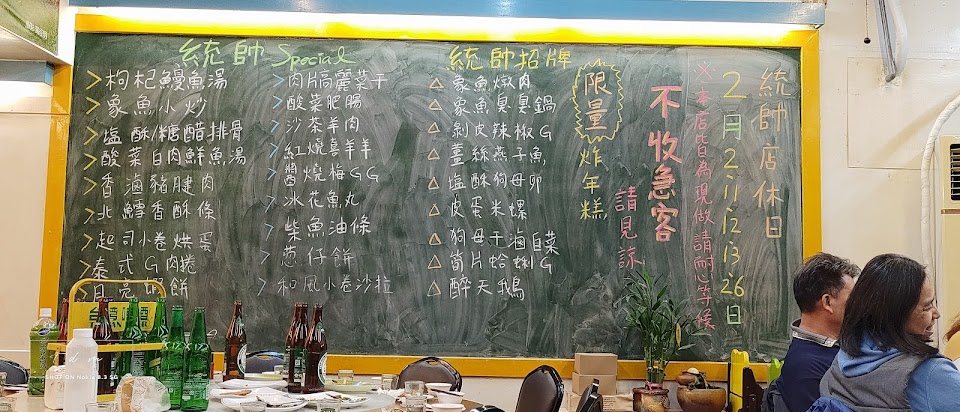 統帥 Special
>枸杞鰻魚湯
>象魚小炒
>塩酥/糖醋排骨
>酸菜白肉鮮魚湯
>香滷豬腱肉
>北鱈香酥條
>起司小卷烘蛋
>泰式G肉捲
>月亮蝦餅
>肉片高麗菜干
>酸菜肥腸
>沙茶羊肉
>紅燒喜羊羊
>醬燒梅GG
>冰花魚丸
>柴魚油條
>蔥仔餅
>和風小卷沙拉
統帥招牌
△象魚燉肉
△象魚臭臭鍋
△剝皮辣椒G
△薑絲燕子魚
△塩酥狗母卵
△皮蛋米螺
△狗母干滷白菜
△筍片蛤蜊G
△醉天鵝
限量炸年糕
不收急客
請見諒
※本店皆為現做請耐心等候
2月2.11.12.13.26日
統帥店休日
台灣啤酒